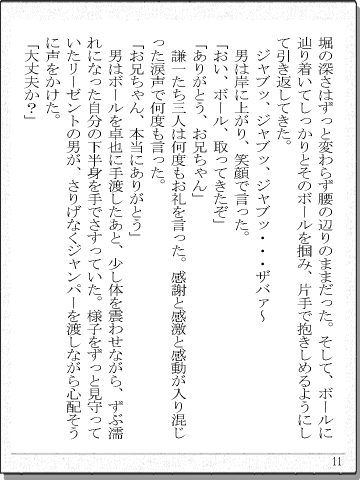 堀の深さはずっと変わらず腰の辺りのままだった。そして、ボールに
辿り着いてしっかりとそのボールを掴み、片手で抱きしめるようにし
て引き返してきた。
ジャブッ、ジャブッ、ジャブッ・・・ザバァ～
男は岸に上がり、笑顔で言った。
「おい、ボール、取ってきたぞ」
「ありがとう、お兄ちゃん」
謙一たち三人は何度もお礼を言った。感謝と感激と感動が入り混じ
った涙声で何度も言った。
「お兄ちゃん、本当にありがとう」
男はボールを卓也に手渡したあと、少し体を震わせながら、ずぶ濡
れになった自分の下半身を手でさすっていた。様子をずっと見守って
いたリーゼントの男が、さりげなくジャンパーを渡しながら心配そう
に声をかけた。
「大丈夫か？」
11